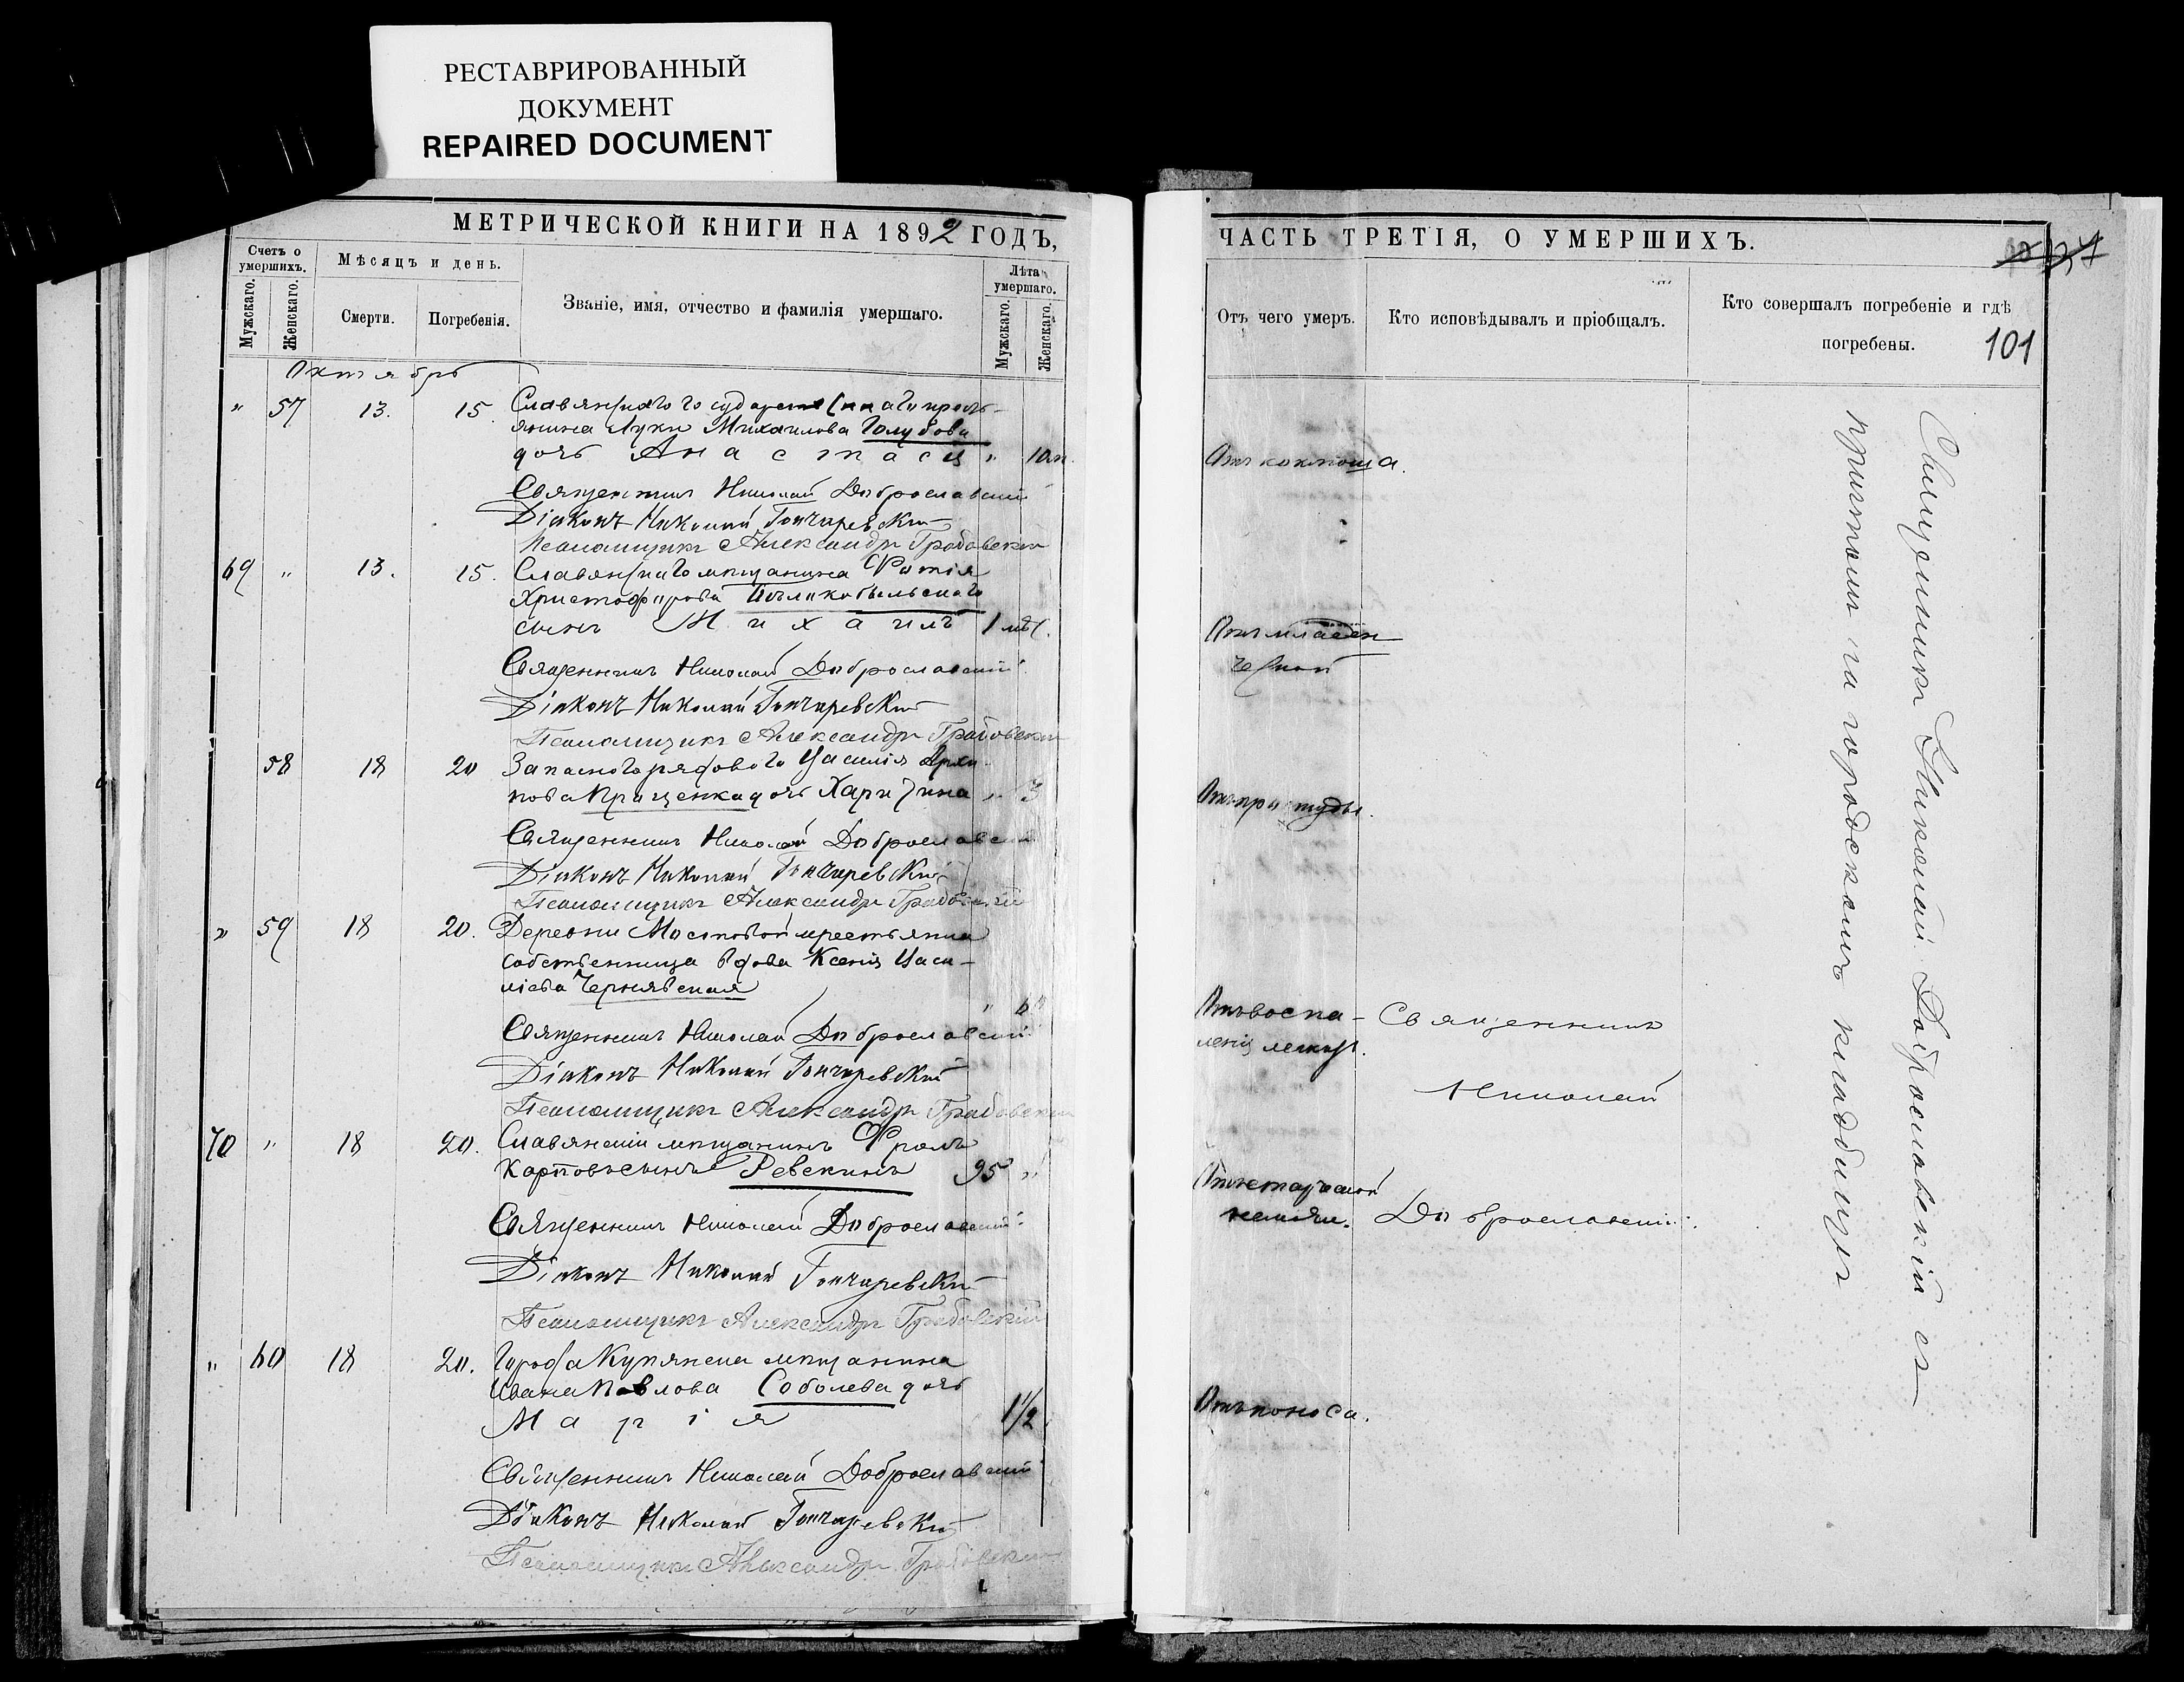 РЕСТАВРИРОВАННЫЙ
ДОКУМЕНТ
REPAIRED DOCUMENT
МЕТРИЧЕСКОЙ КНИГИ НА 1892 ГОДЪ,
Счетъ о умершихъ.
Мужскаго.
Женскаго.
Мѣсяцъ и день.
Смерти.
Погребенія.
Званіе, имя, отчество и фамилія умершаго.
Лѣта умершаго.
Мужскаго.
Женскаго.
Октябрь
" 57 13. 15 Славянскаго государственнаго кресть-
янина Луки Михаилова Голубова
дочь Анастасія " 10 м.
Священникъ Николай Доброславскій
Діаконъ Николай Гончаревскій
Псаломщикъ Александръ Грабовскій
69 " 13. 15. Славянскаго мѣщанина Фотія
Христофорова
сынъ Михаилъ 1 мѣс.
Священникъ Николай Доброславскій
Діаконъ Николай Гончаревскій
Псаломщикъ Александръ Грабовскій
58 18 20 Запаснаго рядоваго Василія Архи-
пова Прищенка дочь Харитина " 3
Священникъ Николай Доброславскій
Діаконъ Николай Гончаревскій
Псаломщикъ Александръ Грабовскій
" 59 18 20. Деревни Мостовой крестьянка
собственница вдова Ксенія Васи-
ліева Чернявская
"
Священникъ Николай Доброславскій
Діаконъ Николай Гончаревскій
Псаломщикъ Александръ Грабовскій
70 " 18 20. Славянскій мѣщанинъ Фролъ
Карповъ сынъ Ревскинъ 95 "
Священникъ Николай Доброславскій
Діаконъ Николай Гончаревскій
Псаломщикъ Александръ Грабовскій
" 60 18 20. Города Купянска мѣщанина
Ивана Павлова Соболева дочь
Марія 1 1/2
Священникъ Николай Доброславскій
Діаконъ Николай Гончаревскій
Псаломщикъ Александръ Грабовскій
ЧАСТЬ ТРЕТІЯ, О УМЕРШИХЪ.
Отъ чего умеръ.
Кто исповѣдывалъ и пріобщалъ.
Кто совершалъ погребеніе и гдѣ
погребены.
101
Отъ коклюша.
Отъ младен
ческой
Отъ простуды.
Отъ воспа-
ленія легкихъ.
Священникъ
Николай
Доброславскій.
Отъ старческой
Отъ поноса.
Священникъ Николай Доброславскій съ
причтомъ на городскомъ кладбищѣ